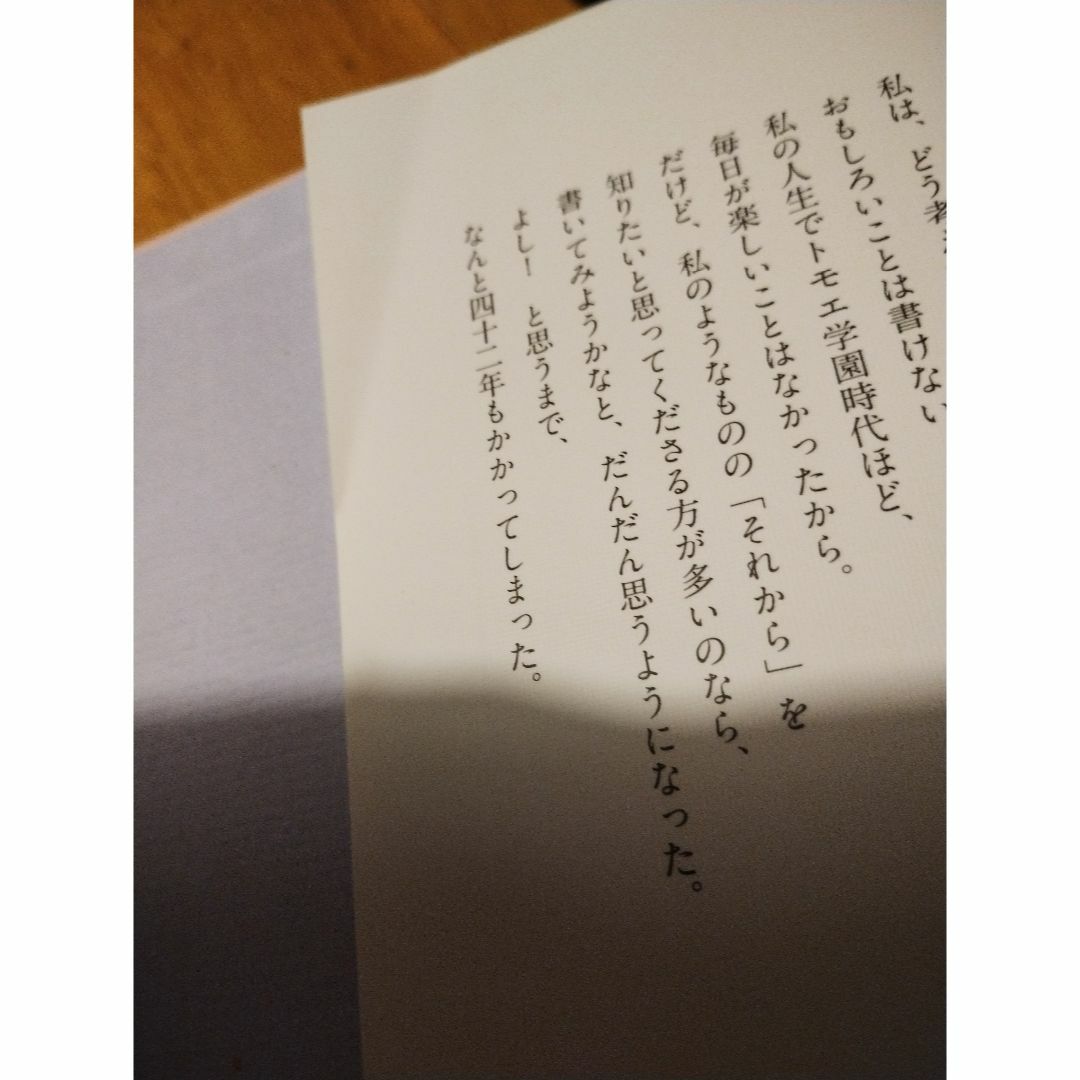 私は、どう考
おもしろいことは書けない
私の人生でトモエ学園時代ほど、
毎日が楽しいことはなかったから。
だけど、私のようなものの「それから」を
知りたいと思ってくださる方が多いのなら、
書いてみようかなと、だんだん思うようになった。
よし！　と思うまで、
なんと四十二年もかかってしまった。